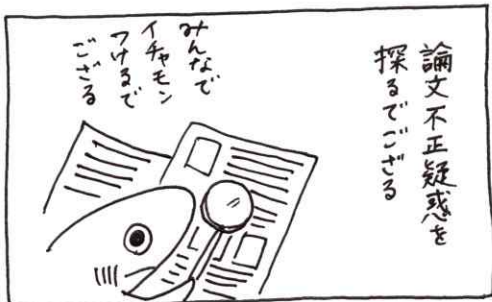 論文不正疑惑を
探るでござる
みんなで
イチャモン
つけるで
ござる